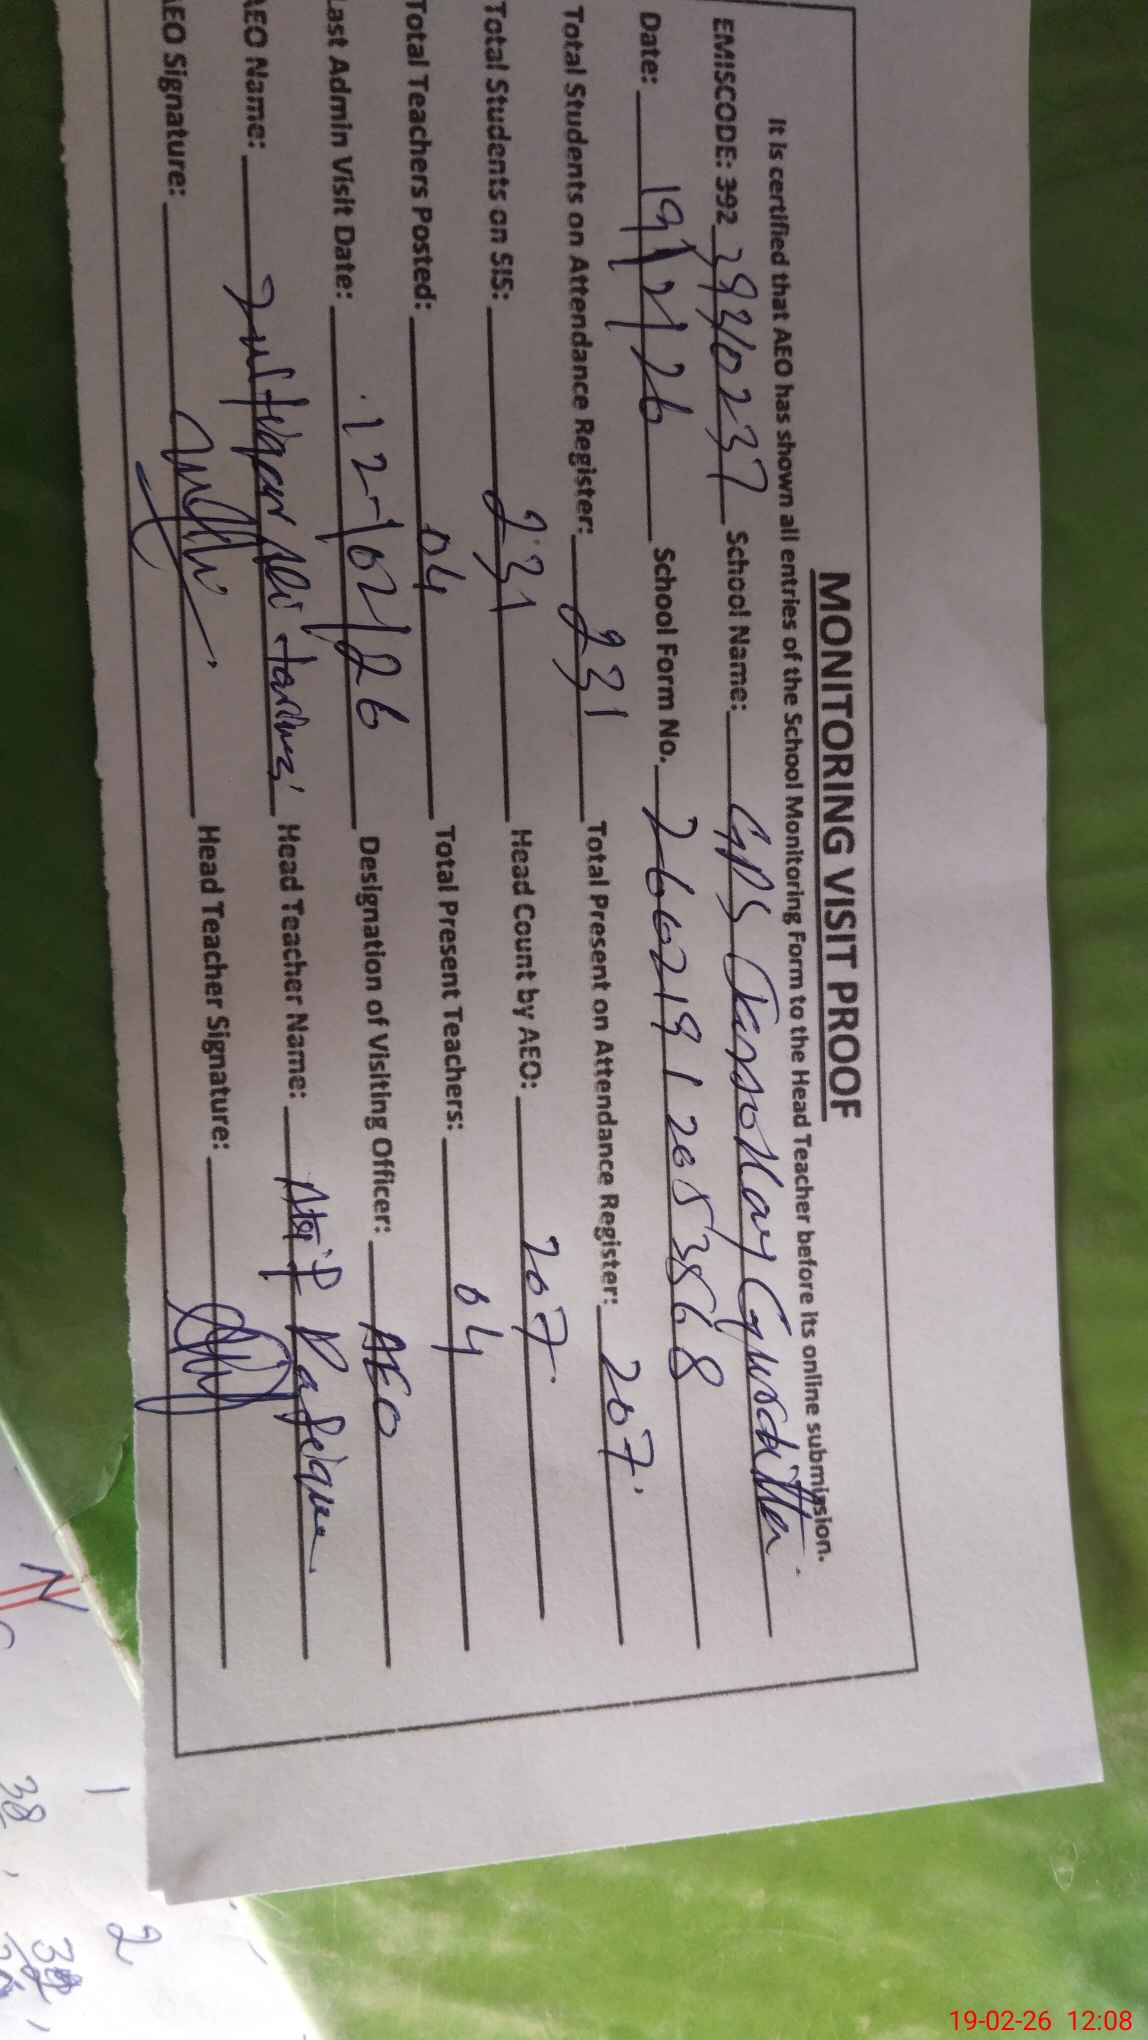 MONITORING VISIT PROOF
It is certified that AEO has shown all entries of the School Monitoring Form to the Head Teacher before its online submission.
EMISCODE: 392 39310237 School Name: GPS Gurditta
Date: 19/2/26 School Form No. 260219120538568
Total Students on Attendance Register: 231 Total Present on Attendance Register: 207
Total Students on SIS: 231 Head Count by AEO: 207
Total Teachers Posted: 04 Total Present Teachers: 04
Last Admin Visit Date: 12-02/26 Designation of Visiting Officer: AEO
AEO Name: Zulfiqar Ali Head Teacher Name: Atif Rafique
AEO Signature: Head Teacher Signature:
N
1 2
38
19-02-26 12:08